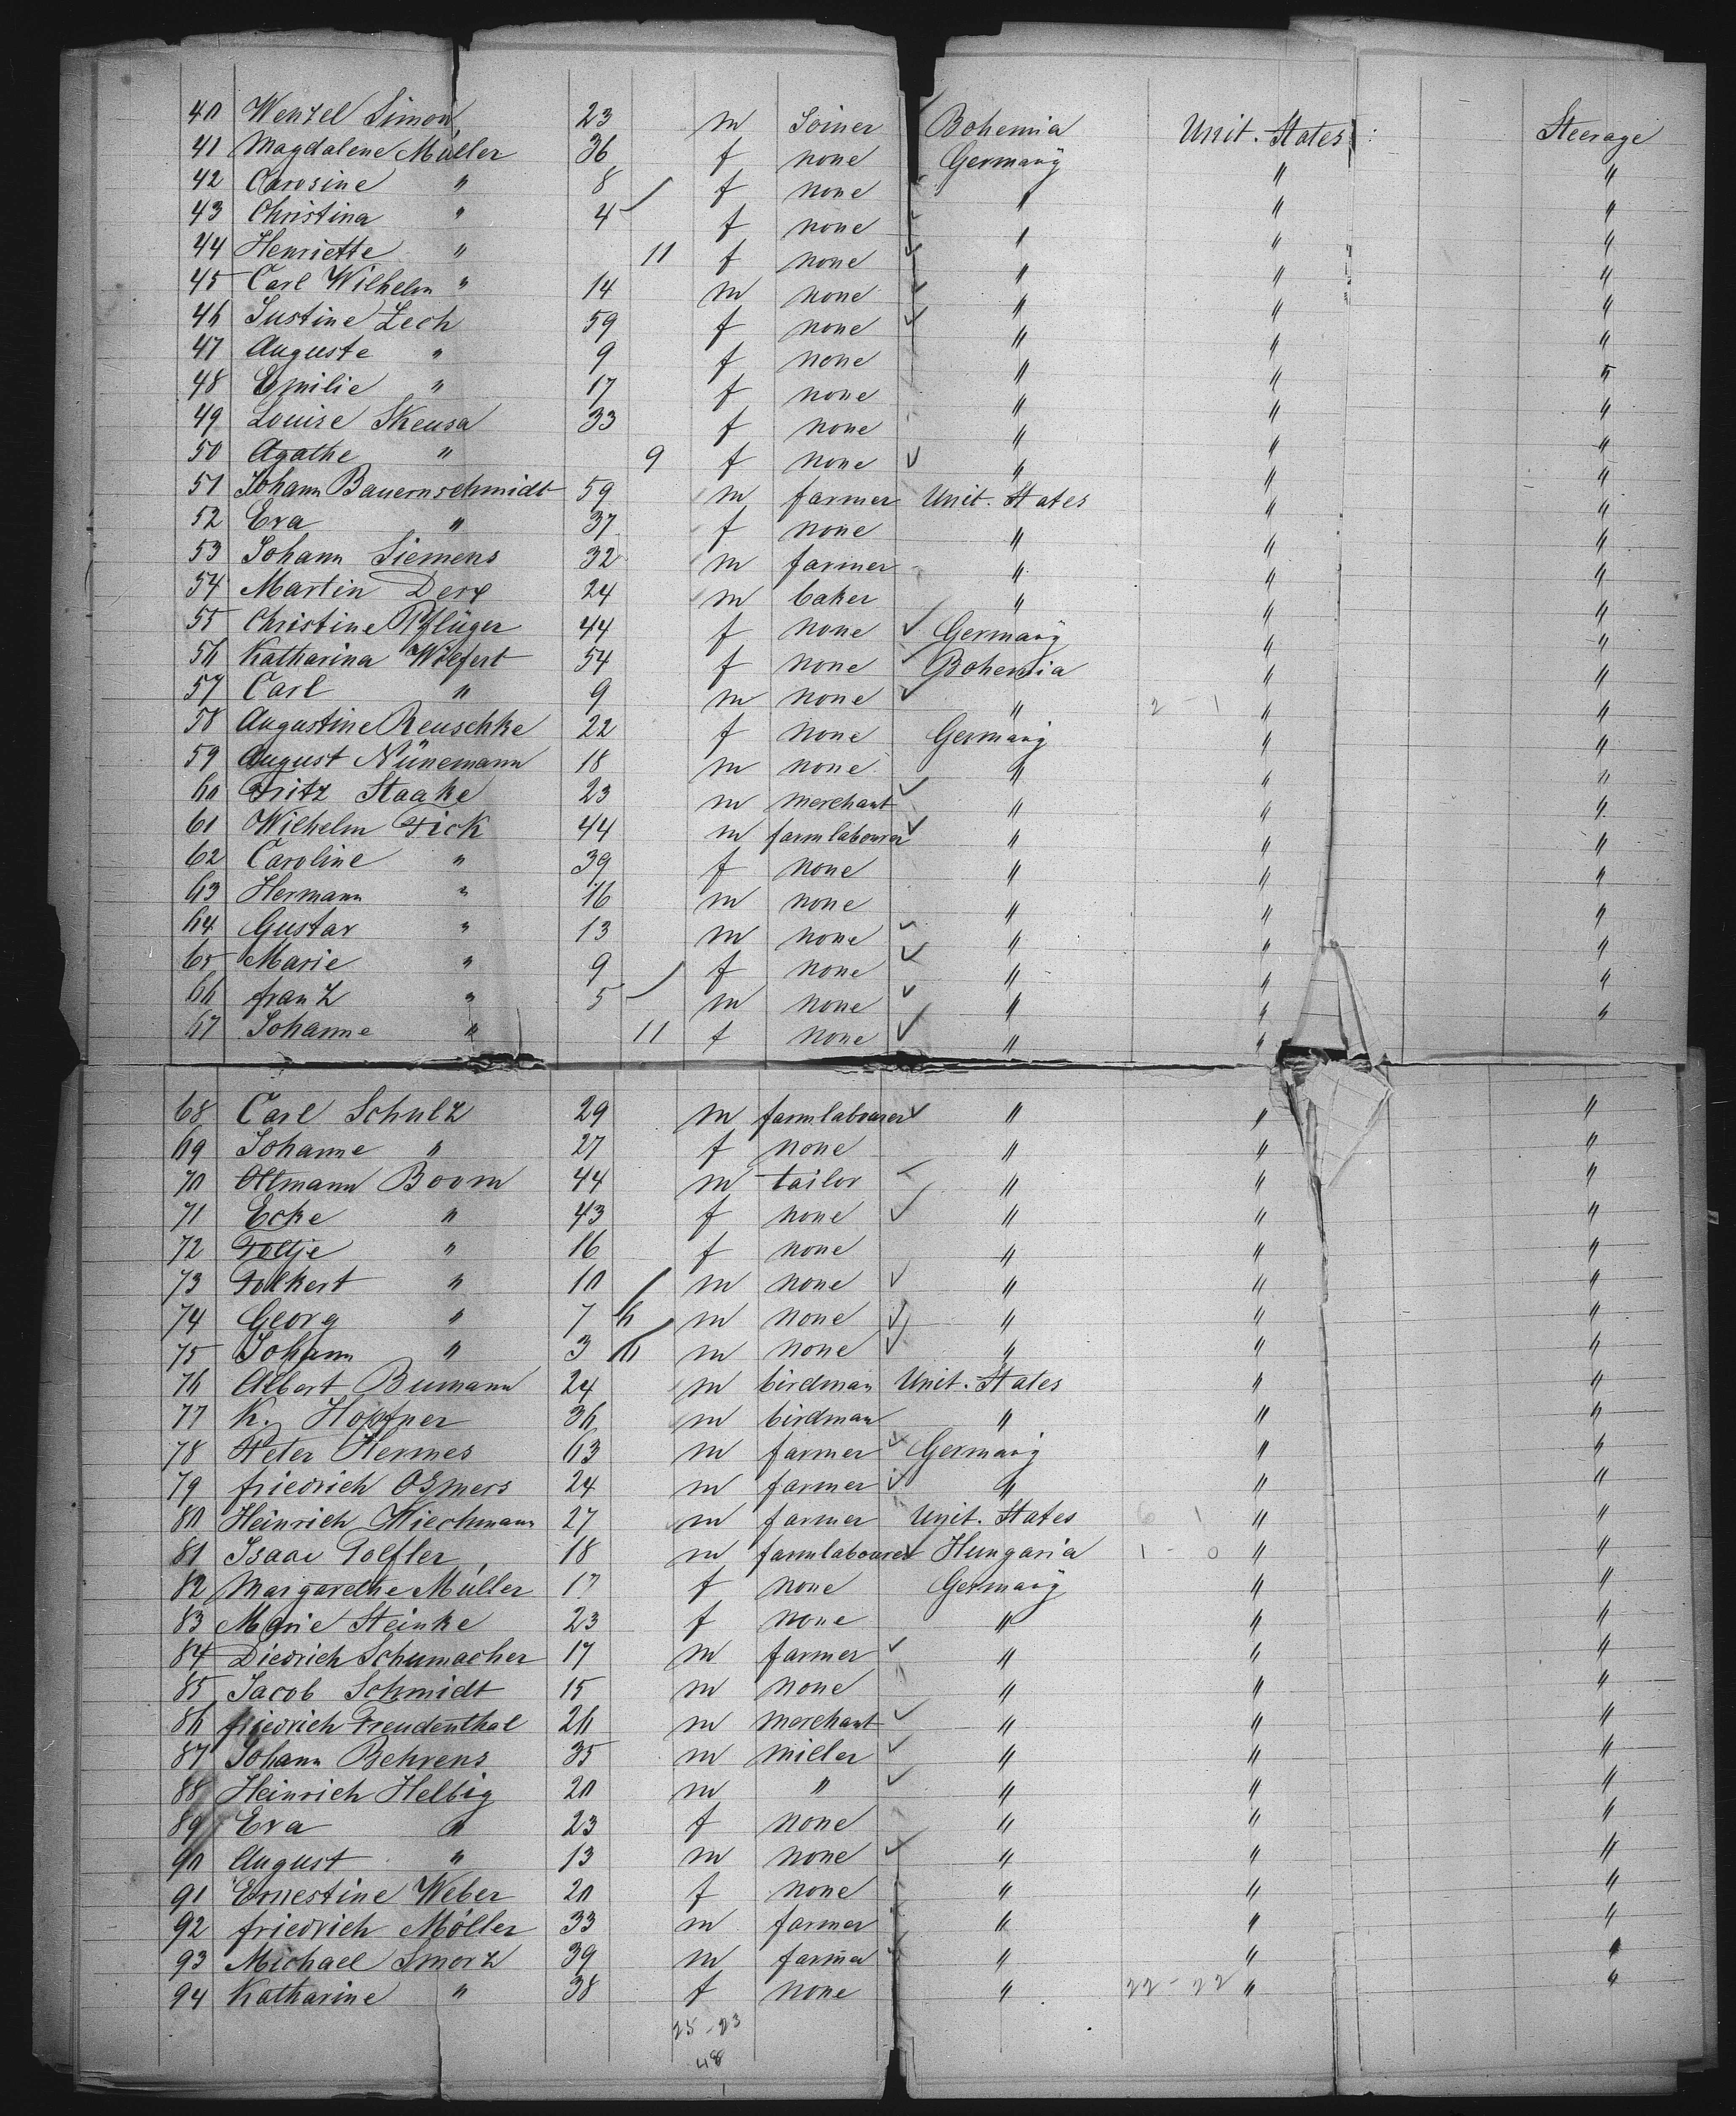 40 Wenzel Simon 23 m Joiner Bohemia Unit. States Steerage
41 Magdalene Müller 36 f none Germany " "
42 Carosine " 8 f none " " "
43 Christina " 4 f none " " "
44 Henriette " 11 f none " " "
45 Carl Wilhelm " 14 m none " " "
46 Justine Zech 59 f none " " "
47 Auguste " 9 f none " " "
48 Emilie " 17 f none " " "
49 Louise Skeusa 33 f none " " "
50 Agathe " 9 f none " " "
51 Johann Bauernschmidt 59 m farmer Unit. States " "
52 Eva " 37 f none " " "
53 Johann Siemens 32 m farmer " " "
54 Martin Derx 24 m baker " " "
55 Christine Pflüger 44 f none Germany " "
56 Katharina Wilfert 54 f none Bohemia " "
57 Carl " 9 m none " 2 - 1 " "
58 Augustine Reuschke 22 f none Germany " "
59 August Nünemann 18 m none " " "
60 Fritz Staake 23 m merchant " " "
61 Wilhelm Fick 44 m farmlabourer " " "
62 Caroline " 39 f none " " "
63 Hermann " 16 m none " " "
64 Gustav " 13 m none " " "
65 Marie " 9 f none " " "
66 franz " 5 m none " " "
67 Johanne " 11 f none " "
68 Carl Schulz 29 m farmlabourer " " "
69 Johanne " 27 f none " " "
70 Oltmann Boom 44 m tailor " " "
71 Ecke " 43 f none " " "
72 Foltje " 16 f none " " "
73 Folkert " 10 m none " " "
74 Georg " 7 6 m none " " "
75 Johann " 3 m none " " "
76 Albert Bumann 24 m birdman Unit. States " "
77 K. Hopfner 36 m birdman " " "
78 Peter Hermes 63 m farmer Germany " "
79 friedrich Osmers 24 m farmer " " "
80 Heinrich Wiechmann 27 m farmer Unit. States 6 1 " "
81 Isaac Golfler 18 m farmlabourer Hungaria 1 - 0 " "
82 Margarethe Müller 17 f none Germany " "
83 Marie Steinke 23 f none " " "
84 Diedrich Schumacher 17 m farmer " " "
85 Jacob Schmidt 15 m none " " "
86 friedrich Freudenthal 26 m merchant " " "
87 Johann Behrens 35 m miller " " "
88 Heinrich Helbig 20 m " " " "
89 Eva " 23 f none " " "
90 August " 13 m none " " "
91 Ernestine Weber 20 f none " " "
92 friedrich Möller 33 m farmer " " "
93 Michael Smorz 39 m farmer " " "
94 Katharine " 38 f none " 22 - 22 " "
25 - 23
48